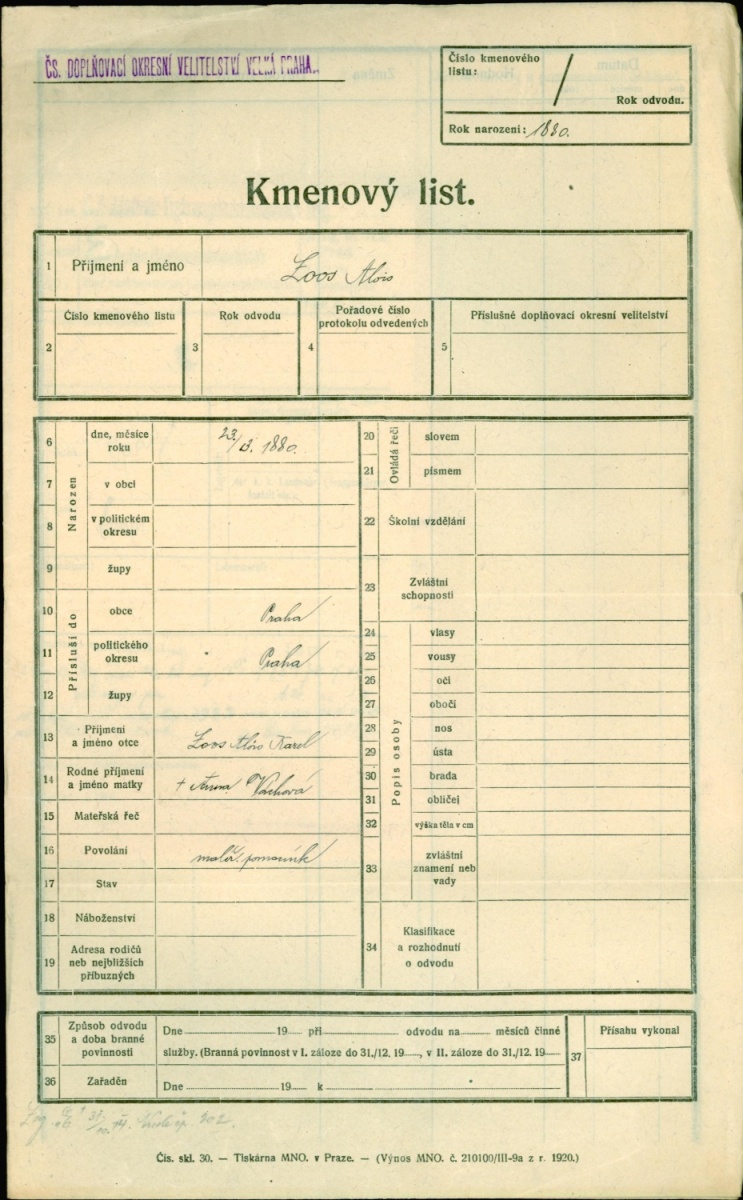 ČS. DOPLŇOVACÍ OKRESNÍ VELITELSTVÍ VELKÁ PRAHA.
Číslo kmenového
listu:
/
Rok odvodu.
Rok narození: 1880.
Kmenový list.
1 Příjmení a jméno Loos Alois
2 Číslo kmenového listu
3 Rok odvodu
4 Pořadové číslo
protokolu odvedených
5 Příslušné doplňovací okresní velitelství
Narozen
6 dne, měsíce
roku 23/3. 1880.
7 v obci
8 v politickém
okresu
9 župy
Přísluší do
10 obce Praha
11 politického
okresu Praha
12 župy
13 Příjmení
a jméno otce Loos Alois Karel
14 Rodné příjmení
a jméno matky + Anna Váchová
15 Mateřská řeč
16 Povolání malíř. pomocník
17 Stav
18 Náboženství
19 Adresa rodičů
neb nejbližších
příbuzných
Ovládá řeči
20 slovem
21 písmem
22 Školní vzdělání
23 Zvláštní
schopnosti
Popis osoby
24 vlasy
25 vousy
26 oči
27 obočí
28 nos
29 ústa
30 brada
31 obličej
32 výška těla v cm
33 zvláštní
znamení neb
vady
34 Klasifikace
a rozhodnutí
o odvodu
35 Způsob odvodu
a doba branné
povinnosti
Dne 19 při odvodu na měsíců činné
služby. (Branná povinnost v I. záloze do 31./12. 19, v II. záloze do 31./12. 19
36 Zařaděn
Dne 19 k
37 Přísahu vykonal
Čís. skl. 30. — Tiskárna MNO. v Praze. — (Výnos MNO. č. 210100/III-9a z r. 1920.)